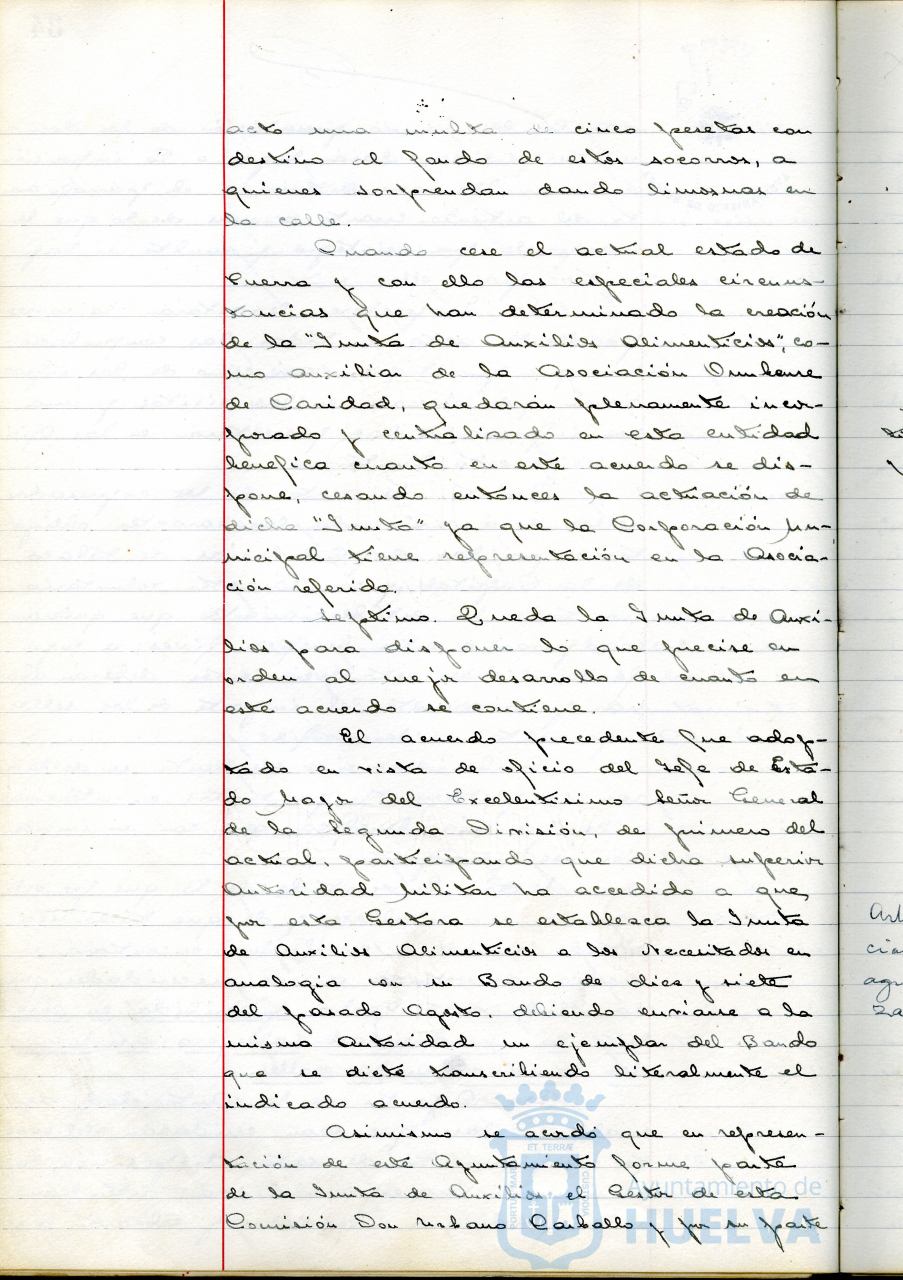 acto una multa de cinco pesetas con
destino al fondo de estos socorros, a
quienes sorprendan dando limosnas en
la calle.
Cuando cese el actual estado de
Guerra y con ello las especiales circuns-
tancias que han determinado la creación
de la "Junta de Auxilios Alimenticios", co-
mo auxiliar de la Asociación Onubense
de Caridad, quedarán plenamente incor-
porado y centralizado en esta entidad
benéfica cuanto en este acuerdo se dis-
pone, cesando entonces la actuación de
dicha "Junta" ya que la Corporación Mu-
nicipal tiene representación en la Asocia-
ción referida.
Séptimo. Queda la Junta de Auxi-
lios para disponer lo que precise en
orden al mejor desarrollo de cuanto en
este acuerdo se contiene.
El acuerdo precedente fue adop-
tado en vista de oficio del Jefe de Esta-
do Mayor del Excelentísimo Señor General
de la Segunda División, de primero del
actual, participando que dicha superior
Autoridad Militar ha accedido a que,
por esta Gestora se establezca la Junta
de Auxilios Alimenticios a los Necesitados en
analogia con su Bando de diez y siete
del pasado Agosto, debiendo enviarse a la
misma Autoridad un ejemplar del Bando
que se dicte transcribiendo literalmente el
indicado acuerdo.
Asimismo se acordó que en represen-
tación de este Ayuntamiento forme parte
de la Junta de Auxilios el Gestor de esta
Comisión Don Urbano Carballo y por su parte
Ayuntamiento de
HUELVA